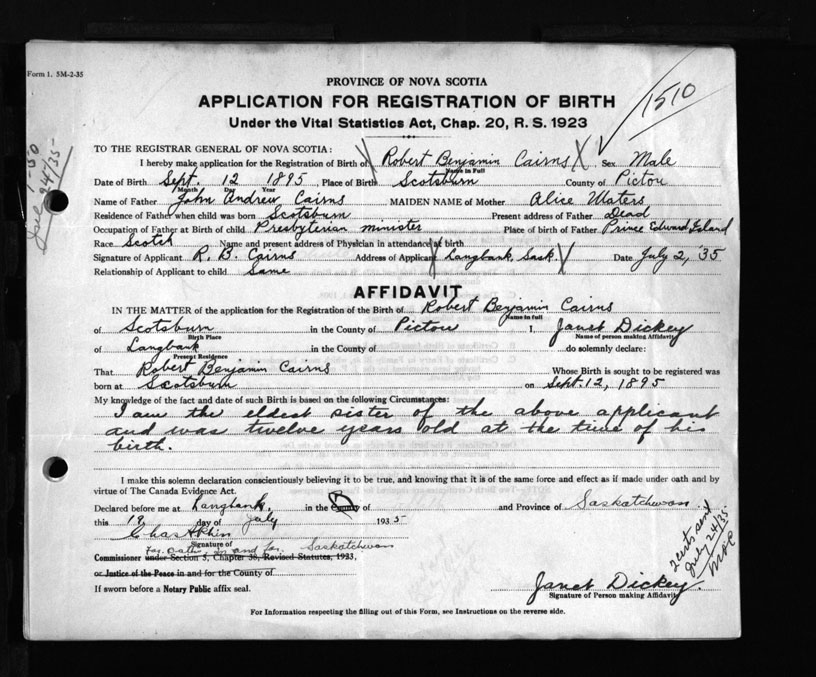 Form 1. 5M-2-35
PROVINCE OF NOVA SCOTIA
APPLICATION FOR REGISTRATION OF BIRTH
Under the Vital Statistics Act, Chap. 20, R. S. 1923
1510
July 24/35
TO THE REGISTRAR GENERAL OF NOVA SCOTIA:
I hereby make application for the Registration of Birth of Robert Benjamin Cairns Sex Male
Name in Full
Date of Birth Sept. 12 1895 Place of Birth Scotsburn County of Pictou
Month Day Year
Name of Father John Andrew Cairns MAIDEN NAME of Mother Alice Waters
Residence of Father when child was born Scotsburn Present address of Father Dead
Occupation of Father at Birth of child Presbyterian minister Place of birth of Father Prince Edward Island
Race Scotch Name and present address of Physician in attendance at birth
Signature of Applicant R. B. Cairns Address of Applicant Langbank, Sask. Date July 2, 35
Relationship of Applicant to child Same
AFFIDAVIT
IN THE MATTER of the application for the Registration of the Birth of Robert Benjamin Cairns
Name in full
of Scotsburn in the County of Pictou I, Janet Dickey
Birth Place Name of person making Affidavit
of Langbank in the County of do solemnly declare:
Present Residence
That Robert Benjamin Cairns Whose Birth is sought to be registered was
born at Scotsburn on Sept. 12, 1895
My knowledge of the fact and date of such Birth is based on the following Circumstances:
I am the eldest sister of the above applicant
and was twelve years old at the time of his
birth.
I make this solemn declaration conscientiously believing it to be true, and knowing that it is of the same force and effect as if made under oath and by
virtue of The Canada Evidence Act.
Declared before me at Langbank, in the County of and Province of Saskatchewan
this 19 day of July 1935
Signature of
in and for Saskatchewan
Commissioner under Section 5, Chapter 36, Revised Statutes, 1923,
or Justice of the Peace in and for the County of
If sworn before a Notary Public affix seal.
Janet Dickey
Signature of Person making Affidavit
July 24/35
For Information respecting the filling out of this Form, see Instructions on the reverse side.